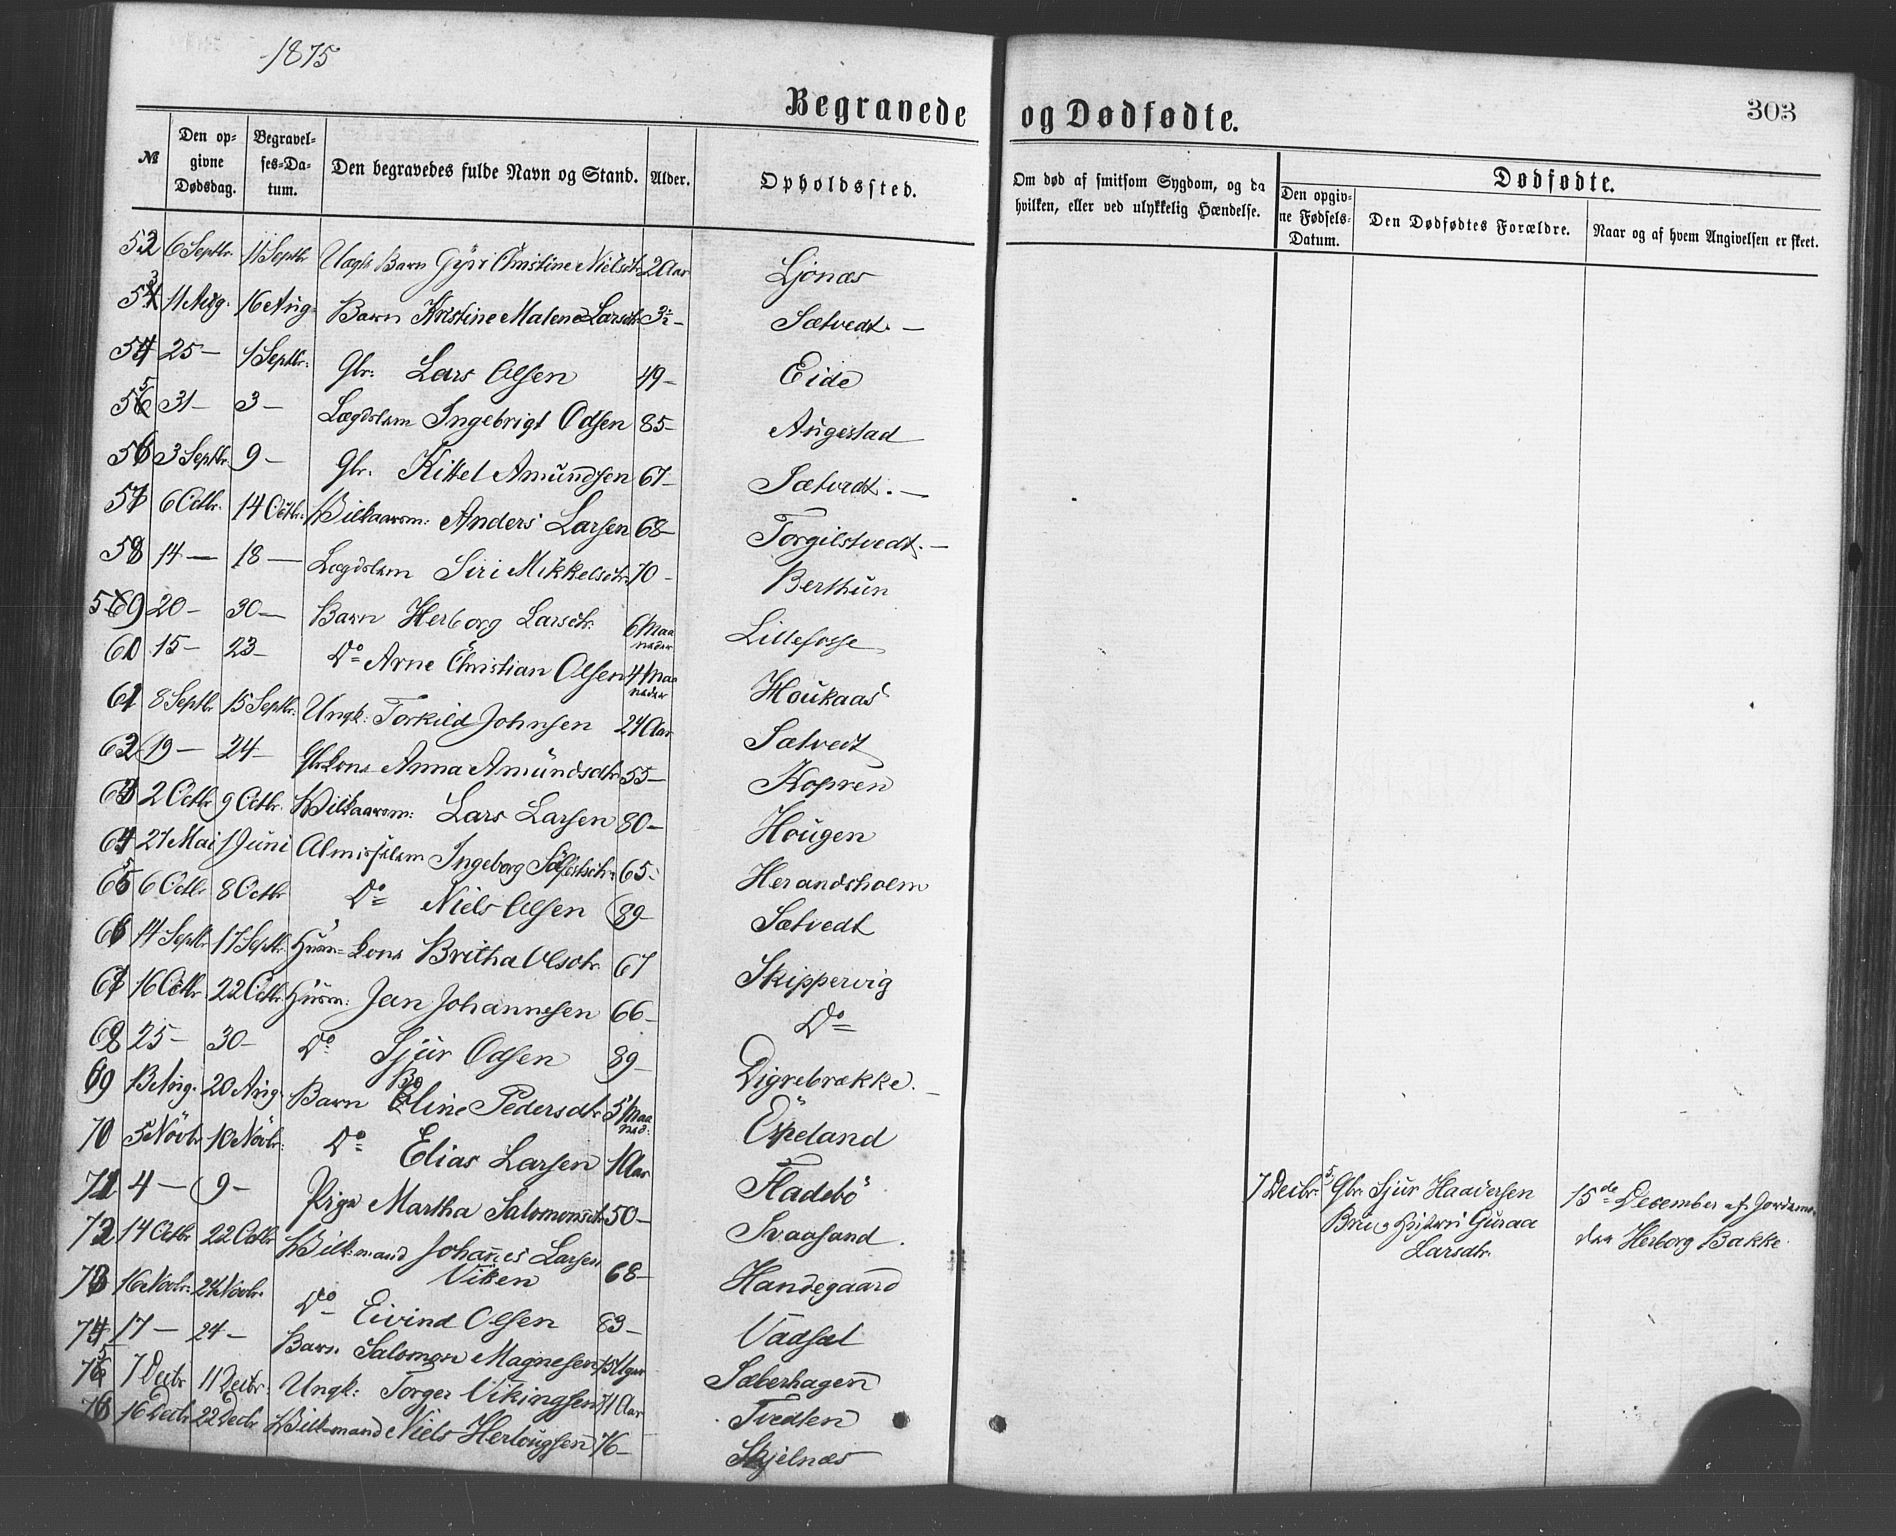 1875
Begravede og Dødfødte.
303
№
Den opgivne Dødsdag.
Begravelses-Datum.
Den begravedes fulde Navn og Stand.
Alder.
Opholdssted.
Om død af smitsom Sygdom, og da hvilken, eller ved ulykkelig Hændelse.
Dødfødte.
Den opgivne Fødsels-Datum.
Den Dødfødtes Forældre.
Naar og af hvem Angivelsen er skeet.
52 6 Septbr. 11 Septbr Barn Christine Nielsdtr 2 Aar Ljonæs
53 11 Aug. 16 Aug. Barn Kristine Malene Larsdtr Sætvedt. —
54 25 — 1 Septbr: Gbr: Lars Olsen 49 — Eide
55 31 — 3 — Lægdslem Ingebrigt Odsen 85 — Augestad
56 3 Septbr. 9 — Gbr. Kittel Amundsen 67 — Sætvedt. —
57 6 Octbr. 14 Octbr. Vilkaarsm: Anders Larsen 68 — Torgilstvedt. —
58 14 — 18 — Lægdslem Siri Mikkelsdtr 70 — Berthun
59 20 — 30 — Barn Herborg Larsdtr: 6 Maaneder Lillefosse
60 15 — 23 — Do Arne Christian Olsen 4 Maaneder Houkaas
61 8 Septbr 15 Septbr: Ungk: Torkild Johnsen 24 Aar Sætvedt
62 19 — 24 — Gbrkone Anna Amundsdtr 55 — Kopren
63 2 Octbr 9 Octbr. Vilkaarsm: Lars Larsen 80 — Hougen
64 27 Mai 1 Juni Almisselem Ingeborg 65 — Herandsholm
65 6 Octbr 8 Octbr Do Niels Olsen 89 — Sætvedt
66 14 Septbr 17 Septbr. Husm-kone Britha Olsdtr 67 Skippervig
67 16 Octbr 22 Octbr Husm: Jan Johannesen 66 — Do
68 25 — 30 — Do Sjur Odsen 89 — Digrebrække. —
69 13 Aug. 20 Aug. Barn Eline Pedersdtr 5 Maaned: Espeland
70 5 Novbr 10 Novbr: Do Elias Larsen 1 Aar Fladebö
71 4 — 9 — Pige Martha Salomonsdtr 50 — Svaasand.
72 14 Octbr 22 Octbr Vilk-mand Johannes Larsen Viken 68 — Handegaard
73 16 Novbr: 24 Novbr. Do Eivind Olsen 83 — Vadsel
74 17 — 24 — Barn Salomon Magnesen Uger Sæberhagen
75 7 Decbr 11 Decbr: Ungk: Torger Vikingsen 71 Aar Tvedten
76 16 Decbr 22 Decbr Vilk-mand Niels Herlougsen 76 — Skjelnæs
7 Decbr. 5. Gbr. Sjur Haaversen
Brue og Hustru Guraa
Larsdtr.
15de December af Jordemoder Herborg Bakke.